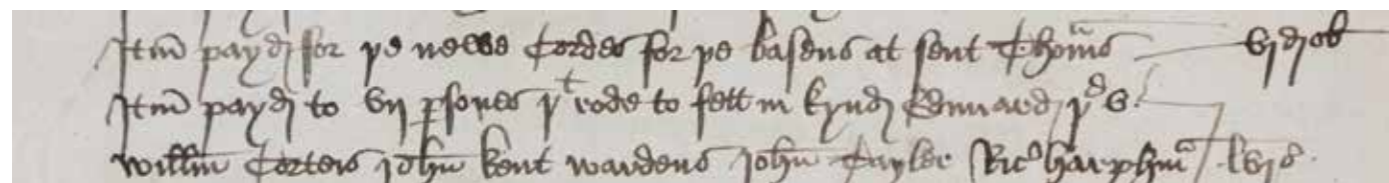 Itm̄ payd for þe newe Cordes for þe basens at sent Thom̄s vj d ob
Itm̄ payd to vij ꝑsones yᵗ rode to fett in kyng Edward þᵉ
willm̄ Corters john̄ kent wardens john̄ Tayler Ricᵒ harphm̄ lvjˢ